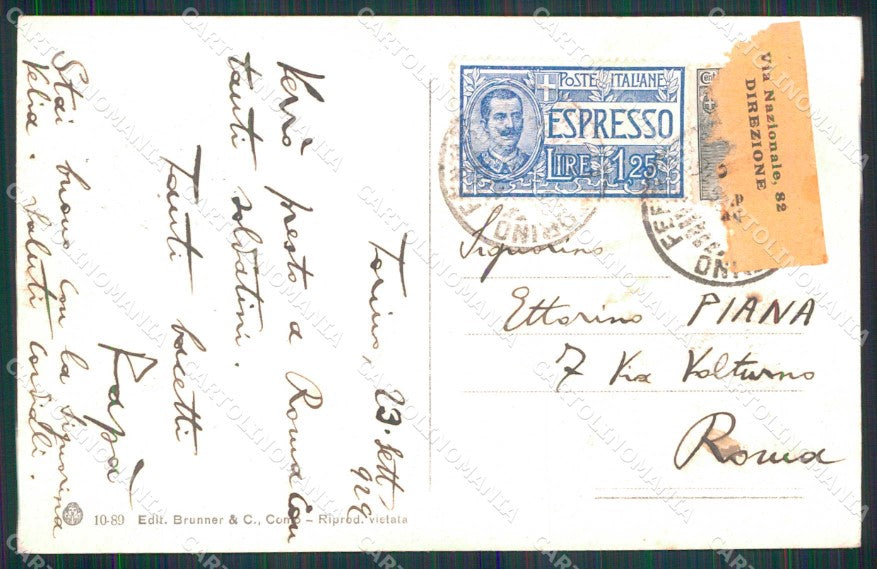 Torino, 23. Sett.
929
Verrò presto a Roma con
tanti soldatini.
Tanti bacetti
Papà
Stai buono con la Signorina
Velia. Saluti cordiali.
POSTE ITALIANE
ESPRESSO
LIRE 1,25
Via Nazionale, 82
DIREZIONE
Signorino
Ettorino PIANA
7 Via Volturno
Roma
10-89 Edit. Brunner & C., Como - Riprod. vietata
CARTOLINOMANIA